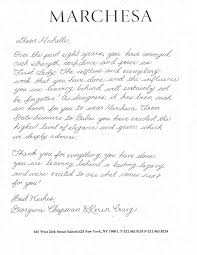 MARCHESA
Dear Michelle,
Over the past eight years, you have conveyed
such strength, confidence and poise as
First Lady. The selfless and exemplary
work that you have done and the influence
you are leaving behind will certainly not
be forgotten! As designers it has been such
an honor for you to wear Marchesa. From
State dinners to Galas you have exuded the
highest level of elegance and grace which
we deeply admire.
Thank you for everything you have done,
you are leaving behind a lasting legacy
and we're excited to see what comes next
for you!
Best Wishes,
Georgina Chapman & Keren Craig
601 West 26th Street New York, NY 10001